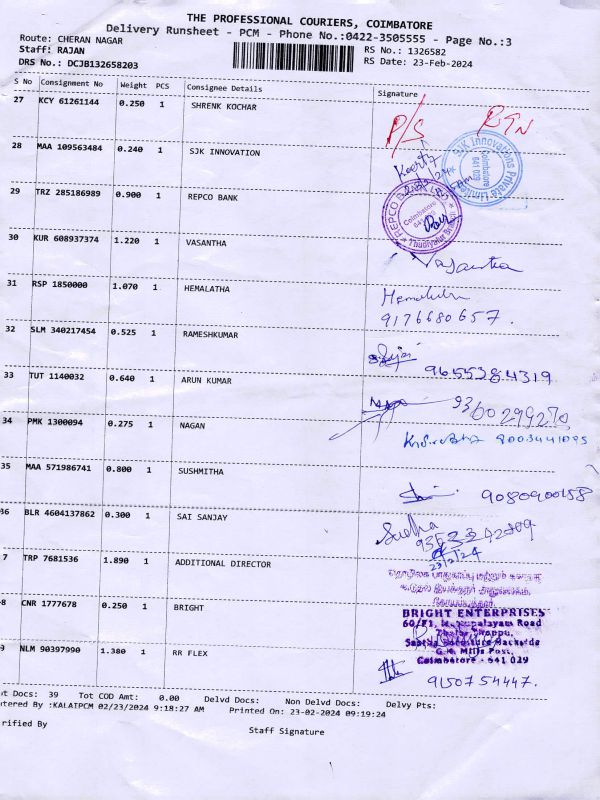 THE PROFESSIONAL COURIERS, COIMBATORE
Delivery Runsheet - PCM - Phone No.:0422-3505555 - Page No.:3
Route: CHERAN NAGAR
Staff: RAJAN
RS No.: 1326582
DRS No.: DCJB132658203
RS Date: 23-Feb-2024
S No Consignment No Weight PCS Consignee Details Signature
27 KCY 61261144 0.250 1 SHRENK KOCHAR P/S RTN
28 MAA 109563484 0.240 1 SJK INNOVATION
SJK Innovations Private Limited
Coimbatore
29 TRZ 285186989 0.900 1 REPCO BANK
REPCO
Coimbatore
30 KUR 608937374 1.220 1 VASANTHA Vasantha
31 RSP 1850000 1.070 1 HEMALATHA Hemalatha
9176680657.
32 SLM 340217454 0.525 1 RAMESHKUMAR
9655384319
33 TUT 1140032 0.640 1 ARUN KUMAR
34 PMK 1300094 0.275 1 NAGAN
35 MAA 571986741 0.800 1 SUSHMITHA
9080900158
36 BLR 4604137862 0.300 1 SAI SANJAY Sudha
23/2/24
7 TRP 7681536 1.890 1 ADDITIONAL DIRECTOR
8 CNR 1777678 0.250 1 BRIGHT
BRIGHT ENTERPRISES
G.K. Mills Post,
Coimbatore - 641 029
9 NLM 90397990 1.380 1 RR FLEX
9150754447.
t Docs: 39 Tot COD Amt: 0.00 Delvd Docs: Non Delvd Docs: Delvy Pts:
tered By :KALAIPCM 02/23/2024 9:18:27 AM Printed On: 23-02-2024 09:19:24
rified By
Staff Signature